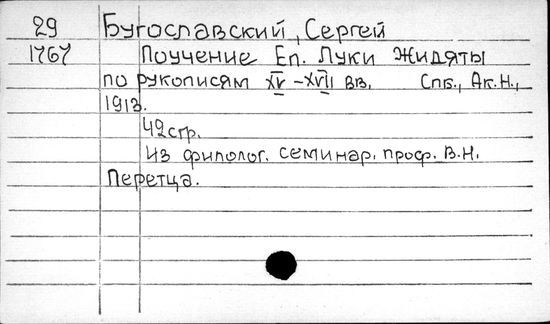 29 Бугославский, Сергей
1767 Поучение Еп. Луки Жидяты
по рукописям XV-XVII вв. Спб., Ак.Н.,
1913.
42 стр.
Из филолог. семинар. проф. В.Н.
Перетца.